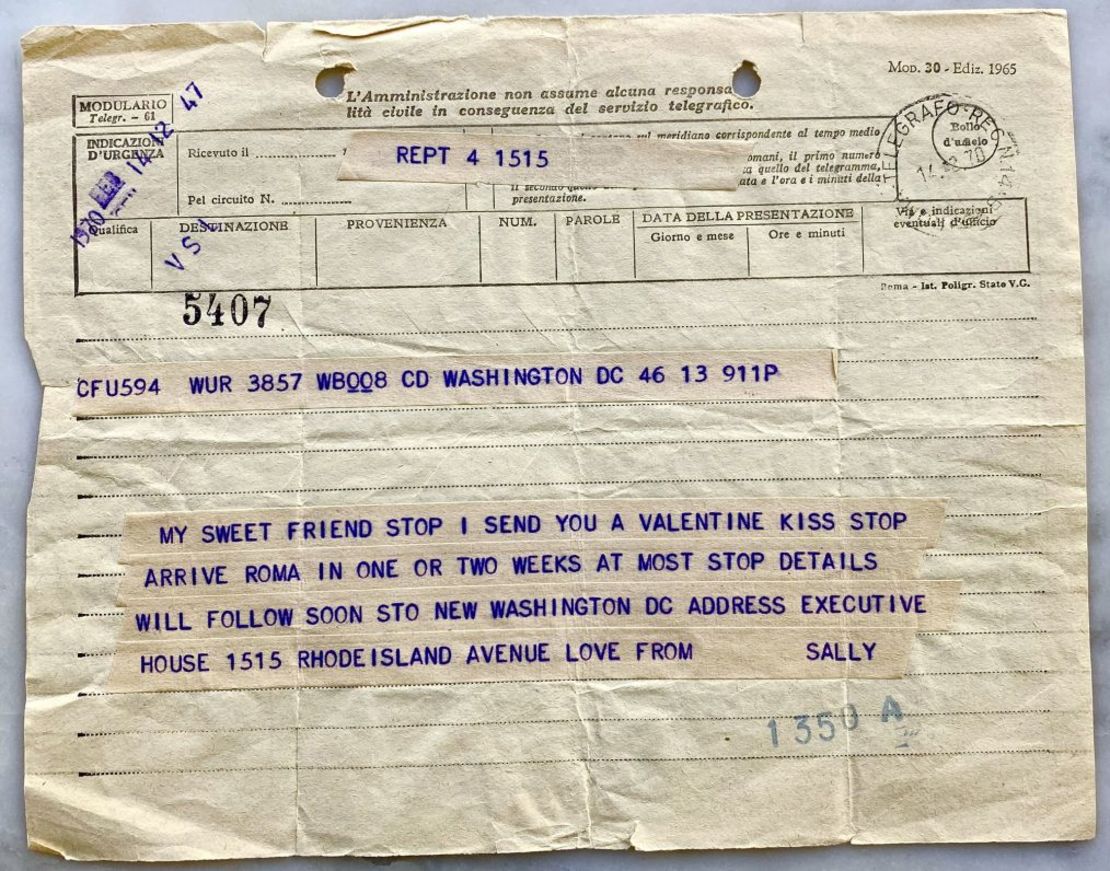 MOD. 30 - Ediz. 1965
MODULARIO
Telegr. - 61
L'Amministrazione non assume alcuna responsa
lità civile in conseguenza del servizio telegrafico.
INDICAZIONI
D'URGENZA
1970 FEB 14 12 47
Ricevuto il
Pel circuito N.
REPT 4 1515
sul meridiano corrispondente al tempo medio
omani, il primo numero
a quello del telegramma,
ata e l'ora e i minuti della
il secondo
presentazione.
TELEGRAFO
Bollo
d'ufficio
Qualifica
DESTINAZIONE
PROVENIENZA
NUM.
PAROLE
DATA DELLA PRESENTAZIONE
Giorno e mese
Ore e minuti
Via e indicazioni
eventuali d'ufficio
Roma - Ist. Poligr. Stato V.C.
5407
CFU594 WUR 3857 WB008 CD WASHINGTON DC 46 13 911P
MY SWEET FRIEND STOP I SEND YOU A VALENTINE KISS STOP
ARRIVE ROMA IN ONE OR TWO WEEKS AT MOST STOP DETAILS
WILL FOLLOW SOON STO NEW WASHINGTON DC ADDRESS EXECUTIVE
HOUSE 1515 RHODEISLAND AVENUE LOVE FROM SALLY
1350 A